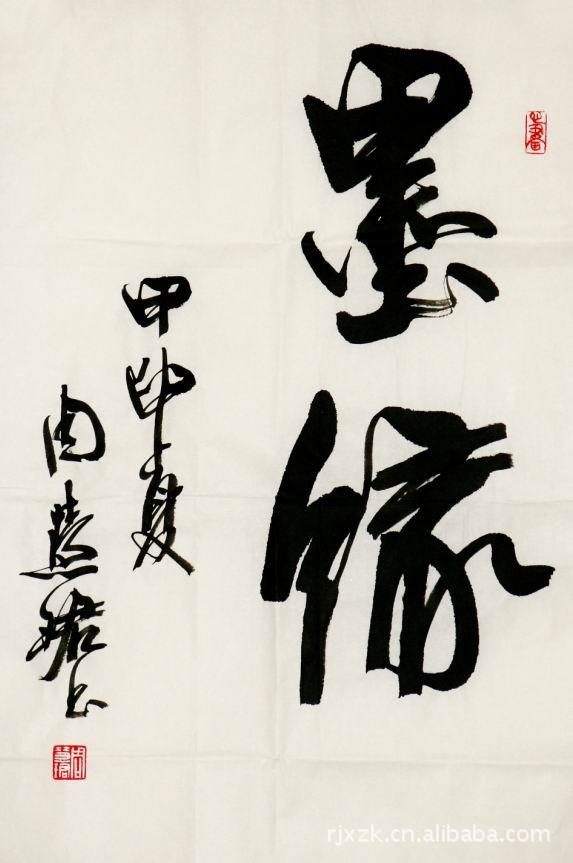 墨缘
甲申夏
周慧珺书
周慧珺
rjxzk.cn.alibaba.com